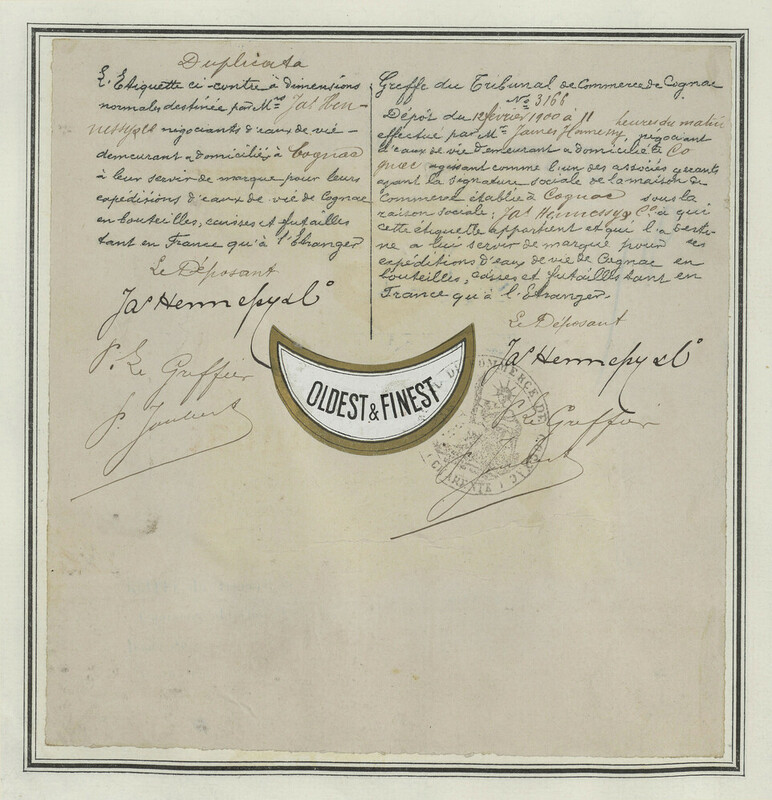 Duplicata
L'Etiquette ci-contre à dimensions
normales destinée par Mrs Jas Hen-
nessy & Co négociants d'eaux de vie -
demeurant & domiciliés à Cognac
à leur servir de marque pour leurs
expéditions d'eaux de vie de Cognac
en bouteilles, caisses et futailles
tant en France qu'à l'Etranger
Le Déposant
Jas Hennessy & Co
P. Le Greffier
P. Joubert
Greffe du Tribunal de Commerce de Cognac
No 3166
Dépôt du 12 février 1900 à 11 heures du matin
effectué par Mr James Hennessy, négociant
d'eaux de vie demeurant & domicilié à Co
gnac agissant comme l'un des associés gérants
ayant la signature sociale de la maison de
Commerce établie à Cognac sous la
raison sociale: Jas Hennessy & Co à qui
cette étiquette appartient et qui l'a desti-
né a lui servir de marque pour ses
expéditions d'eaux de vie de Cognac en
bouteilles, caisses et futailles tant en
France qu'à l'Etranger.
Le Déposant
Jas Hennessy & Co
P. Le Greffier
P. Joubert
OLDEST & FINEST
COMMERCE DE COGNAC
CHARENTE